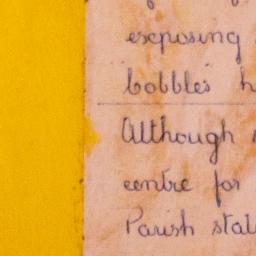 exposing
bobbles h
Although
centre for
Parish stal